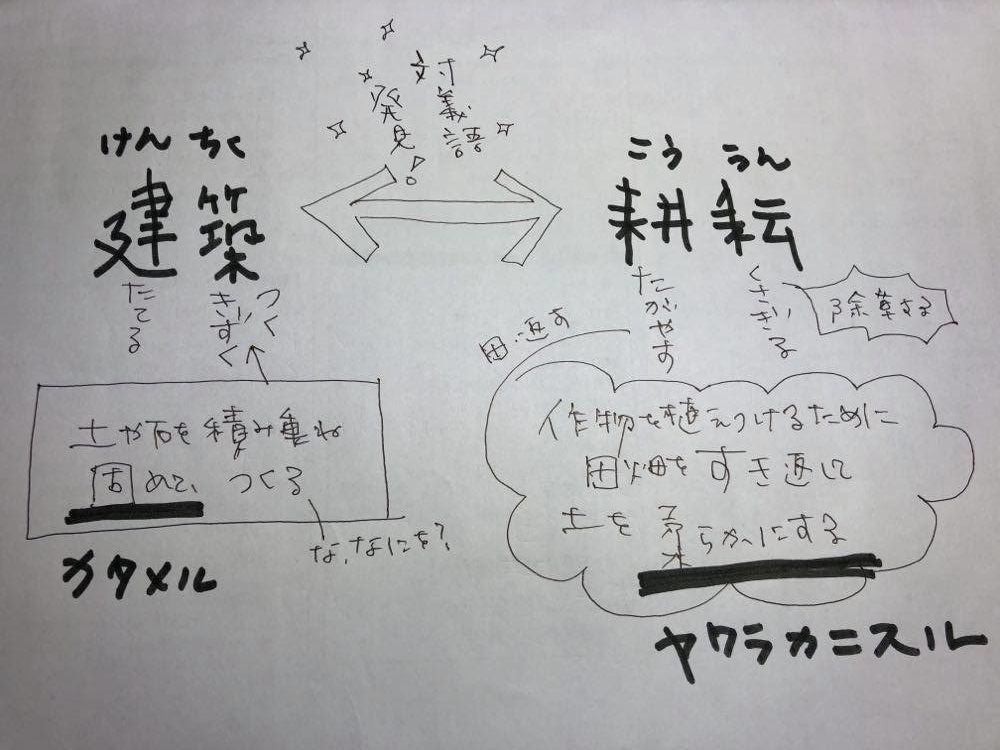 対義語
発見!
けんちく
建築
たてる
きずく
つく
土や石を積み重ね
固めて、つくる
な、なにを?
カタメル
こううん
耕耘
たがやす
くさぎる
除草する
田返す
作物を植えつけるために
田畑をすき返して
土を柔らかにする
ヤワラカニスル